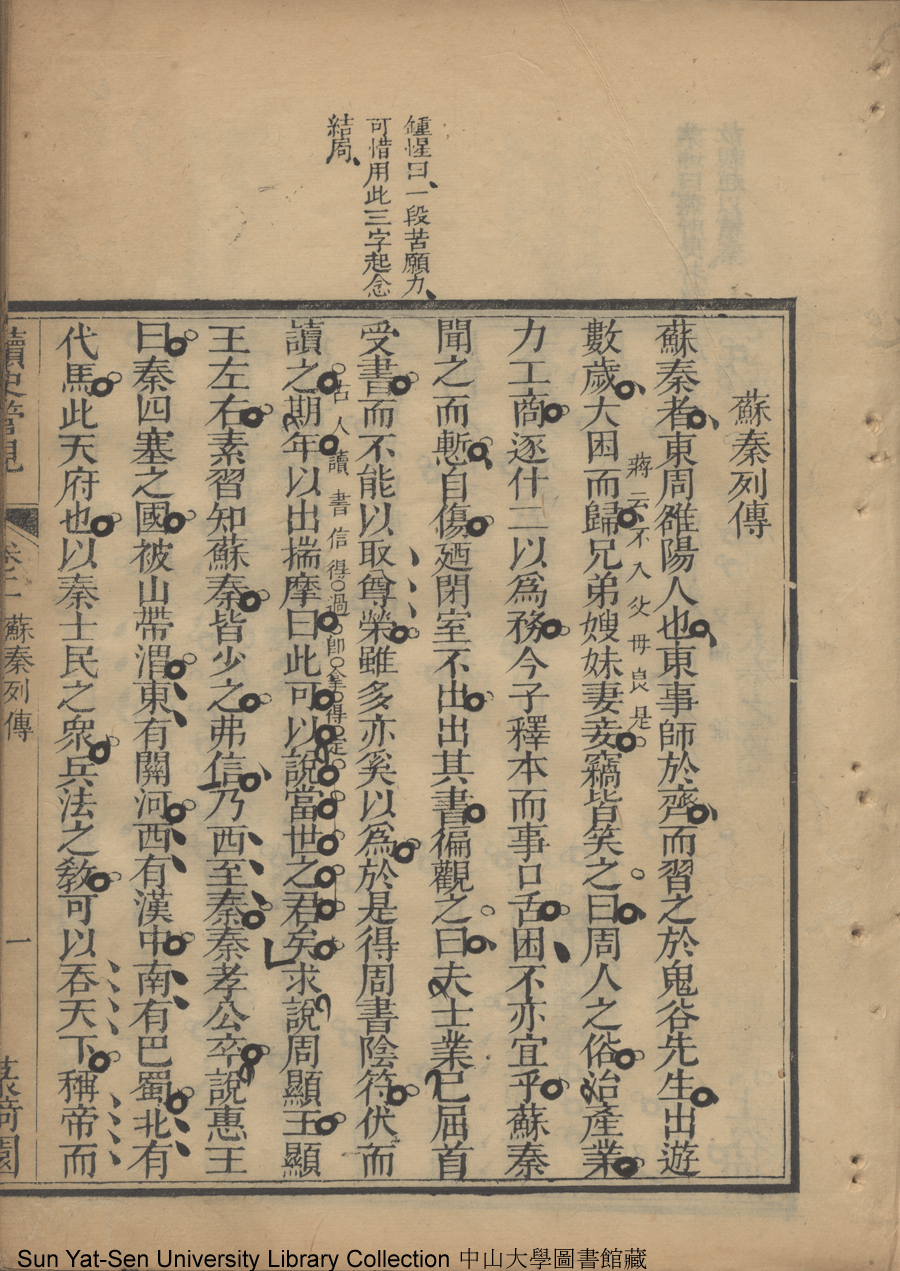 鍾惺曰一段苦願力
可惜用此三字起念
結局
蘇秦列傳
蘇秦者東周雒陽人也東事師於齊而習之於鬼谷先生出遊
蔣云不入父母良是
數歲大困而歸兄弟嫂妹妻妾竊皆笑之曰周人之俗治產業
力工商逐什二以爲務今子釋本而事口舌困不亦宜乎蘇秦
聞之而慙自傷廼閉室不出出其書徧觀之曰夫士業已屈首
受書而不能以取尊榮雖多亦奚以爲於是得周書陰符伏而
古人讀書信得過卽拿得定
讀之期年以出揣摩曰此可以說當世之君矣求說周顯王顯
王左右素習知蘇秦皆少之弗信乃西至秦秦孝公卒說惠王
曰秦四塞之國被山帶渭東有關河西有漢中南有巴蜀北有
代馬此天府也以秦士民之衆兵法之敎可以吞天下稱帝而
讀史
蘇秦列傳
一
園
Sun Yat-Sen University Library Collection 中山大學圖書館藏